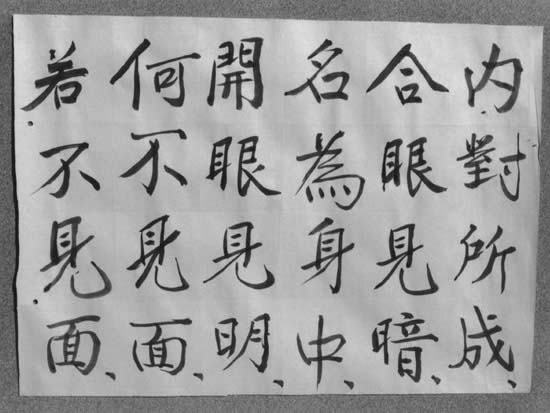 內對所成、
合眼見暗、
名為身中、
開眼見明、
何不見面、
若不見面、